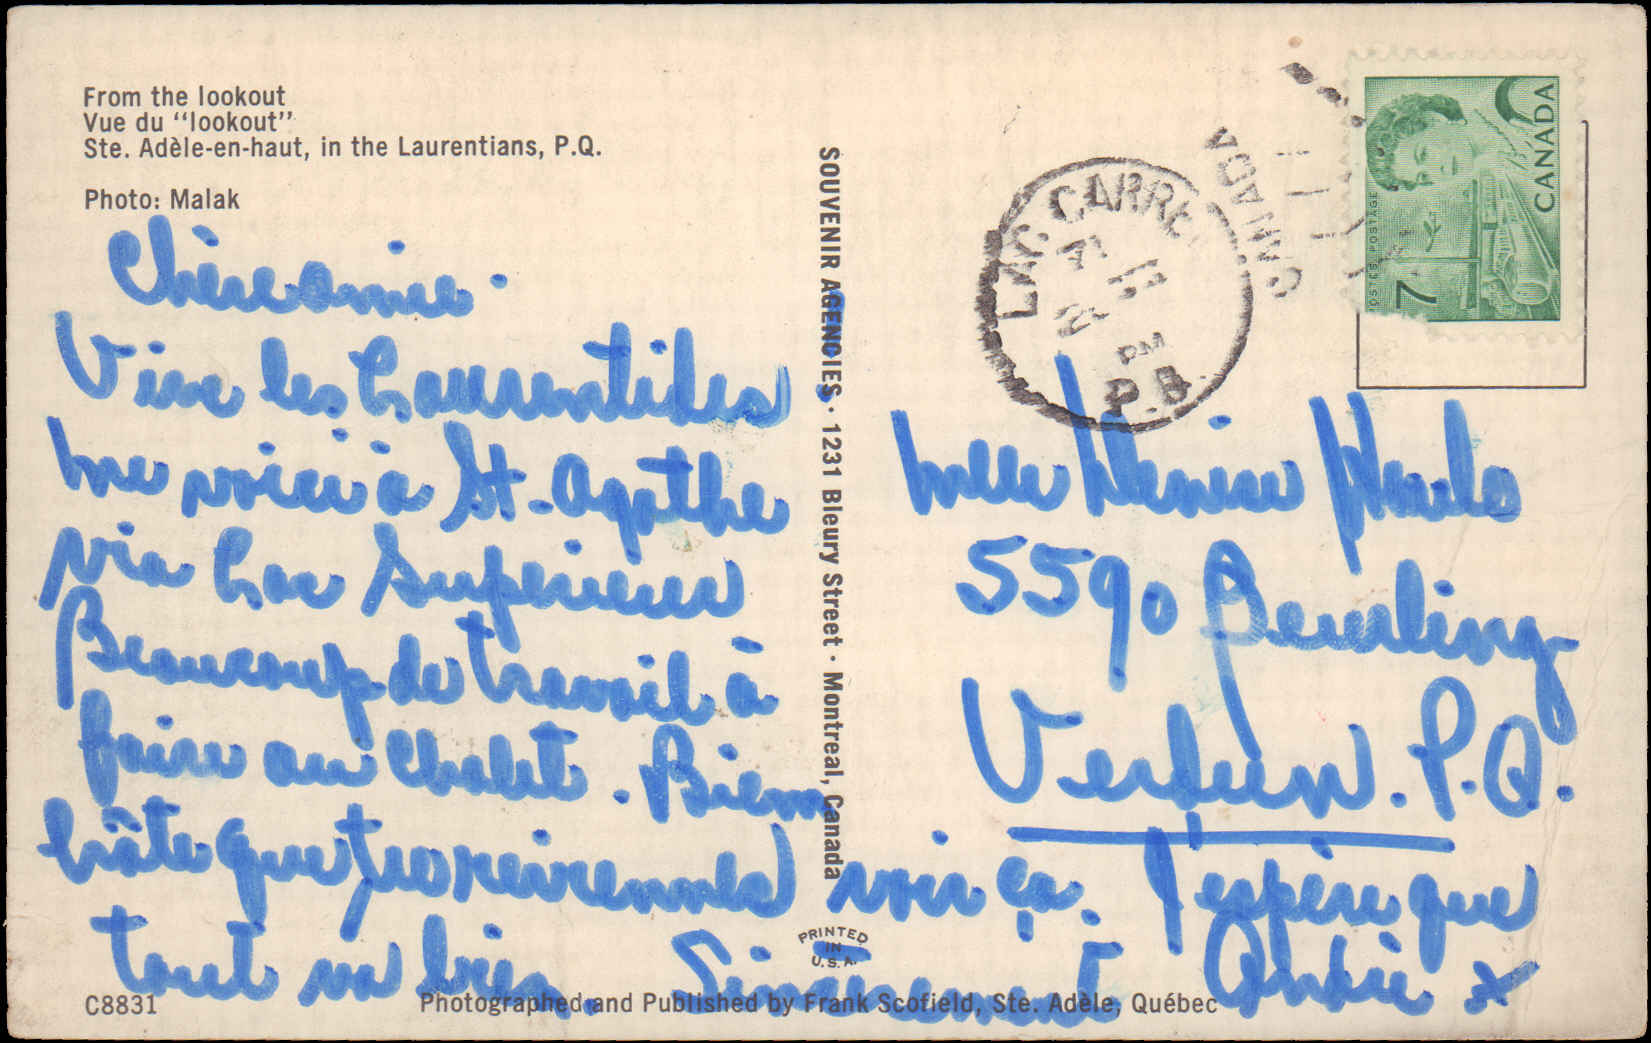 From the lookout
Vue du "lookout"
Ste. Adèle-en-haut, in the Laurentians, P.Q.
Photo: Malak
Chère amie.
Vive les Laurentides
me voici à St. Agathe
via Lac Supérieur
Beaucoup de travail à
faire au chalet. Bien
hâte que tu reviennes voir ça. J'espère que
tout va bien. Sincèrement
SOUVENIR AGENCIES · 1231 Bleury Street · Montreal, Canada
PRINTED
IN
U.S.A.
C8831
Photographed and Published by Frank Scofield, Ste. Adèle, Québec
LAC CARRE
PM
P.Q.
CANADA
CANADA
POSTES POSTAGE
7
Mlle Denise
5590 Beurling
Verdun. P.Q.